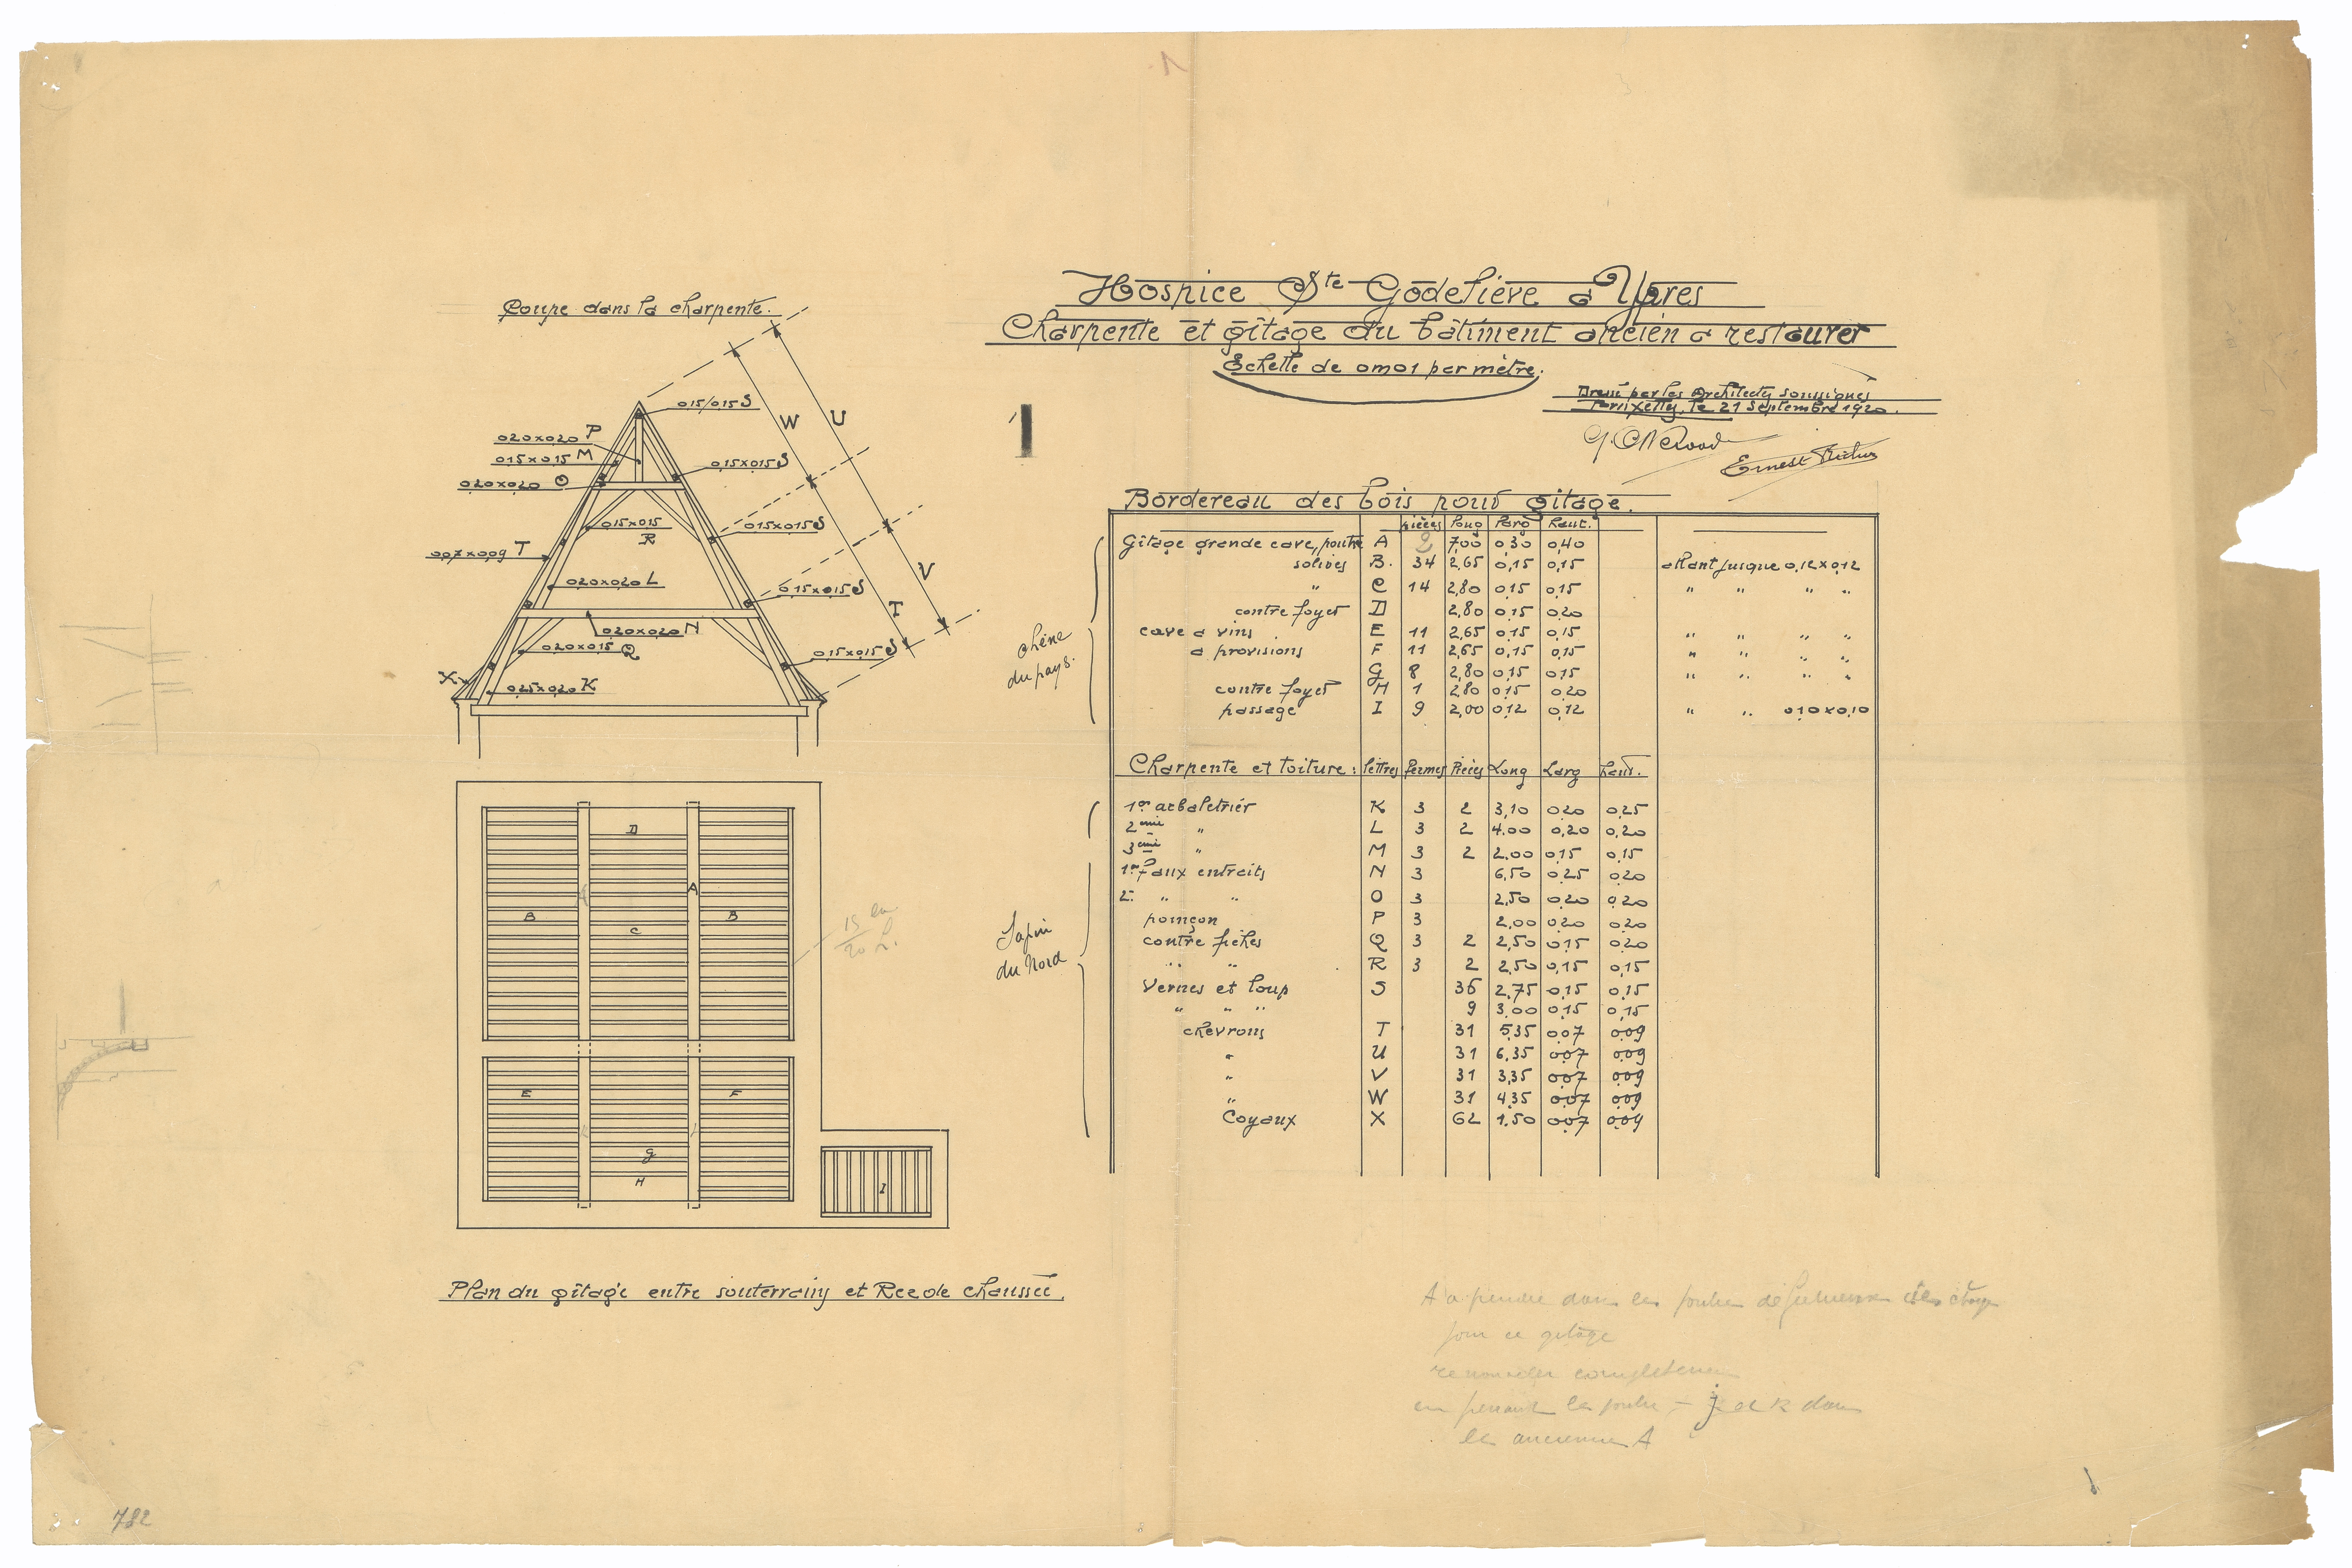 Hospice Ste Godelieve a Ypres
Charpente et gîtage du bâtiment ancien a restaurer
Echelle de 0m01 per mètre.
Dressé par les Architectes soussignés
Bruxelles, le 21 Septembre 1920.
Ernest
1
Coupe dans la charpente.
W U
0,15/0,15 S
0,20x0,20 P
0,15x0,15 M
0,20x0,20 O
0,15x0,15 S
0,15x0,15 R
0,15x0,15 S
0,07x0,09 T
V
0,20x0,20 L
0,15x0,15 S
T
0,20x0,20 N
0,20x0,15 Q
0,15x0,15 S
X
0,25x0,20 K
D
A
B C B
15
20
E F
G
H
I
Plan du gîtage entre souterrains et Rez de chaussée.
Bordereau des bois pour gîtage.
pièces Long Larg Haut.
Gîtage grande cave, poutre A 2 7,00 0,30 0,40
solives B. 34 2,65 0,15 0,15 allant jusque 0,12x0,12
" C 14 2,80 0,15 0,15 " " " "
contre foyer D 2,80 0,15 0,20
cave a vins E 11 2,65 0,15 0,15 " " " "
a provisions F 11 2,65 0,15 0,15 " " " "
G 8 2,80 0,15 0,15 " " " "
contre foyer H 1 2,80 0,15 0,20
passage I 9 2,00 0,12 0,12 " " 0,10x0,10
chêne
du pays.
Charpente et toiture: lettres Fermes Pièces Long Larg haut.
1er arbaletrier K 3 2 3,10 0,20 0,25
2ème " L 3 2 4.00 0,20 0,20
3ème " M 3 2 2.00 0,15 0,15
1er faux entraits N 3 6,50 0,25 0,20
2. " " O 3 2,50 0,20 0,20
poinçon P 3 2,00 0,20 0,20
contre fiches Q 3 2 2,50 0,15 0,20
" " R 3 2 2,50 0,15 0,15
Vernes et loup S 36 2,75 0,15 0,15
" " " 9 3.00 0,15 0,15
chevrons T 31 5,35 0,07 0,09
" U 31 6,35 0,07 0,09
" V 31 3,35 0,07 0,09
" W 31 4,35 0,07 0,09
Coyaux X 62 1.50 0,07 0,09
Sapin
du Nord
A a prendre dans les poutres
pour ce gîtage
renouveler
en prenant les poutres – j et k dans
les anciennes A
782